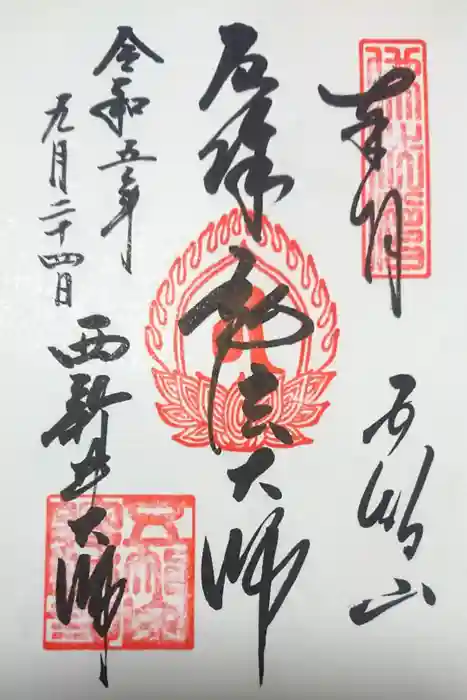 奉拝
五智山
厄除弘法大師
令和五年
九月二十四日
西新井大師